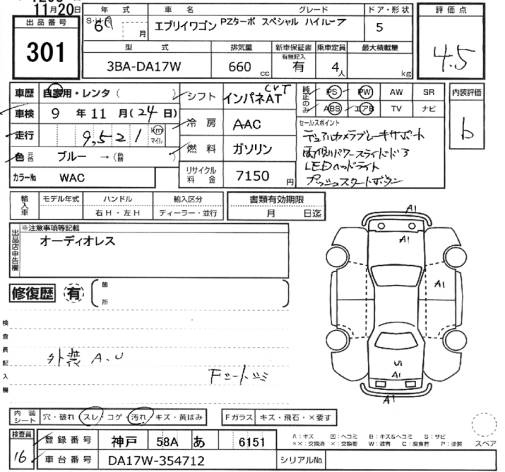 11月20日
年式 車名 グレード ドア・形状 評価点
出品番号
301
6 月 エブリイワゴン PZターボ スペシャル ハイルーフ 5
4.5
型式 排気量 新車保証書 乗車定員 最大積載量
有無記入
3BA-DA17W 660 cc 有 4人 kg
車歴 自家用・レンタ シフト インパネAT CVT
PS PW AW SR 内装評価
車検 9年 11月(24日)
ABS エアB TV ナビ
冷房 AAC
走行 9,521 km マイル
セールスポイント
デュアルカメラブレーキサポート
両側パワースライドドア
LEDヘッドライト
プッシュスタートボタン
b
色 ブルー →
燃料 ガソリン
カラーNo WAC
リサイクル料金 7150円
輸入車 モデル年式 ハンドル 輸入区分 書類有効期限
右H・左H ディーラー・並行 月 日迄
出品店申告欄 ※注意事項等記載
オーディオレス
修復歴 有 箇所
検査員記入欄
外装 A.U
Fシートシミ
A1
A1
A1
U1
A1
内装シート 穴・破れ スレ コゲ 汚れ キズ・黄ばみ Fガラス キズ・飛石・×要す
検査員
16
登録番号 神戸 58A あ 6151
車台番号 DA17W-354712 シリアルNo
スペア